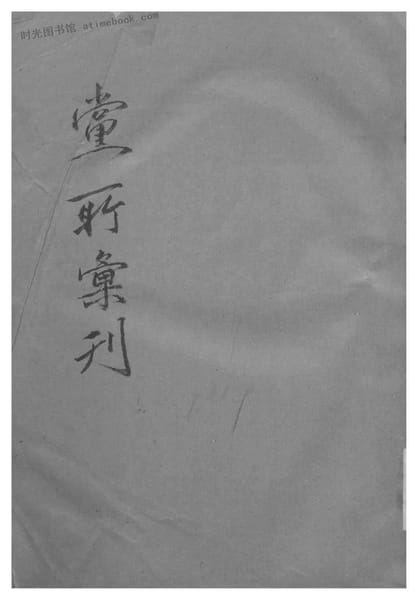 时光图书馆 atimebook.com
黨所彙刊